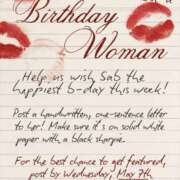 Birthday
Woman
Help us wish Sab the
happiest b-day this week!
Post a handwritten, one-sentence letter
to her! Make sure it's on solid white
paper with a black sharpie.
For the best chance to get featured,
post by Wednesday, May 7th